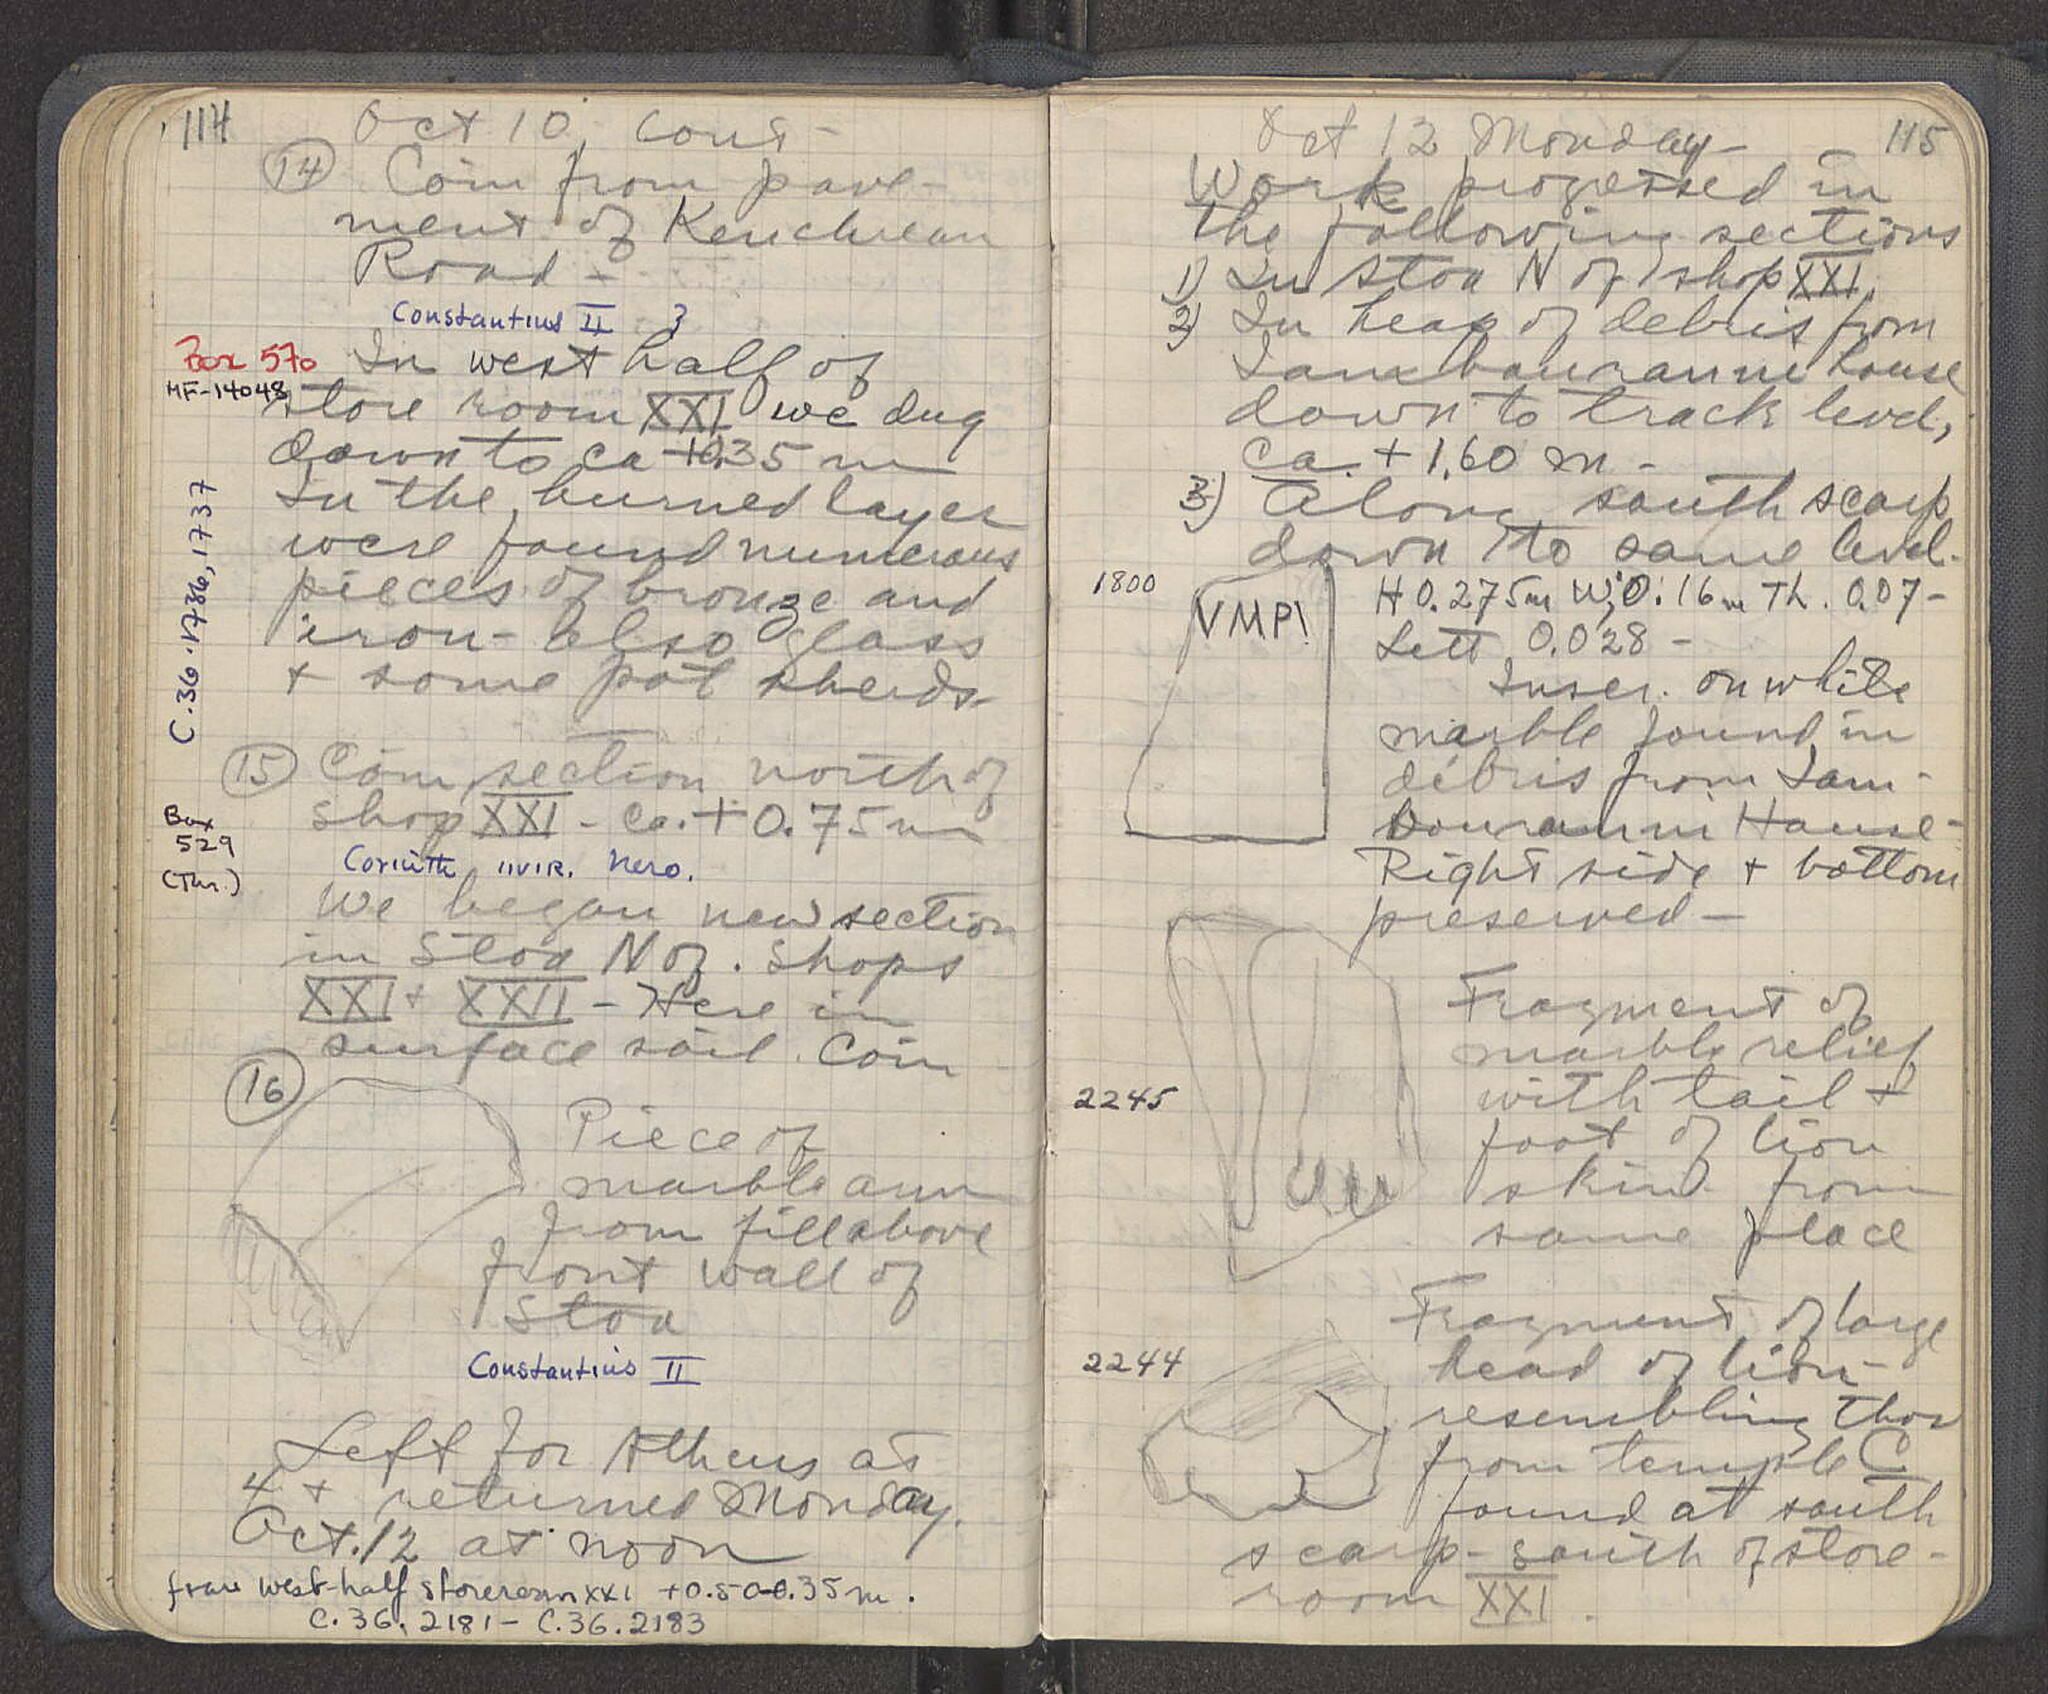 114
Oct 10, cont-
14 Coin from pave-
ment of Kenchrean
Road -
Constantius II ?
Box 570
MF-14048
In west half of
store room XXI we dug
down to ca +0.35 m
In the burned layer
were found numerous
pieces of bronze and
iron - also glass
+ some pot sherds -
C.36.1736, 1737
15 Coin section north of
shop XXI - ca. + 0.75 m
Box
529
(Thr.)
Corinth IIVIR. Nero.
We began new section
in Stoa N of. Shops
XXI + XXII - Here in
surface soil. Coin
16
Piece of
marble arm
from fill above
front wall of
Stoa
Constantius II
Left for Athens at
4 + returned Monday.
Oct. 12 at noon
from west-half storeroom XXI +0.50-0.35 m.
C.36.2181 - C.36.2183
Oct 12 Monday - 115
Work progressed in
the following sections
1) In Stoa N of shop XXI,
2) In heap of debris from
house
down to track level,
ca. + 1.60 m -
3) Along south scarp
down to same level.
1800
VMPI
H 0.275m W; 0.16m Th. 0.07 -
Lett 0.028 -
Inscr. on white
marble found in
débris from
House -
Right side + bottom
preserved -
2245
Fragment of
marble relief
with tail +
foot of lion
skin from
same place
2244
Fragment of large
head of lion -
resembling those
from temple C
found at south
scarp - south of store-
room XXI.